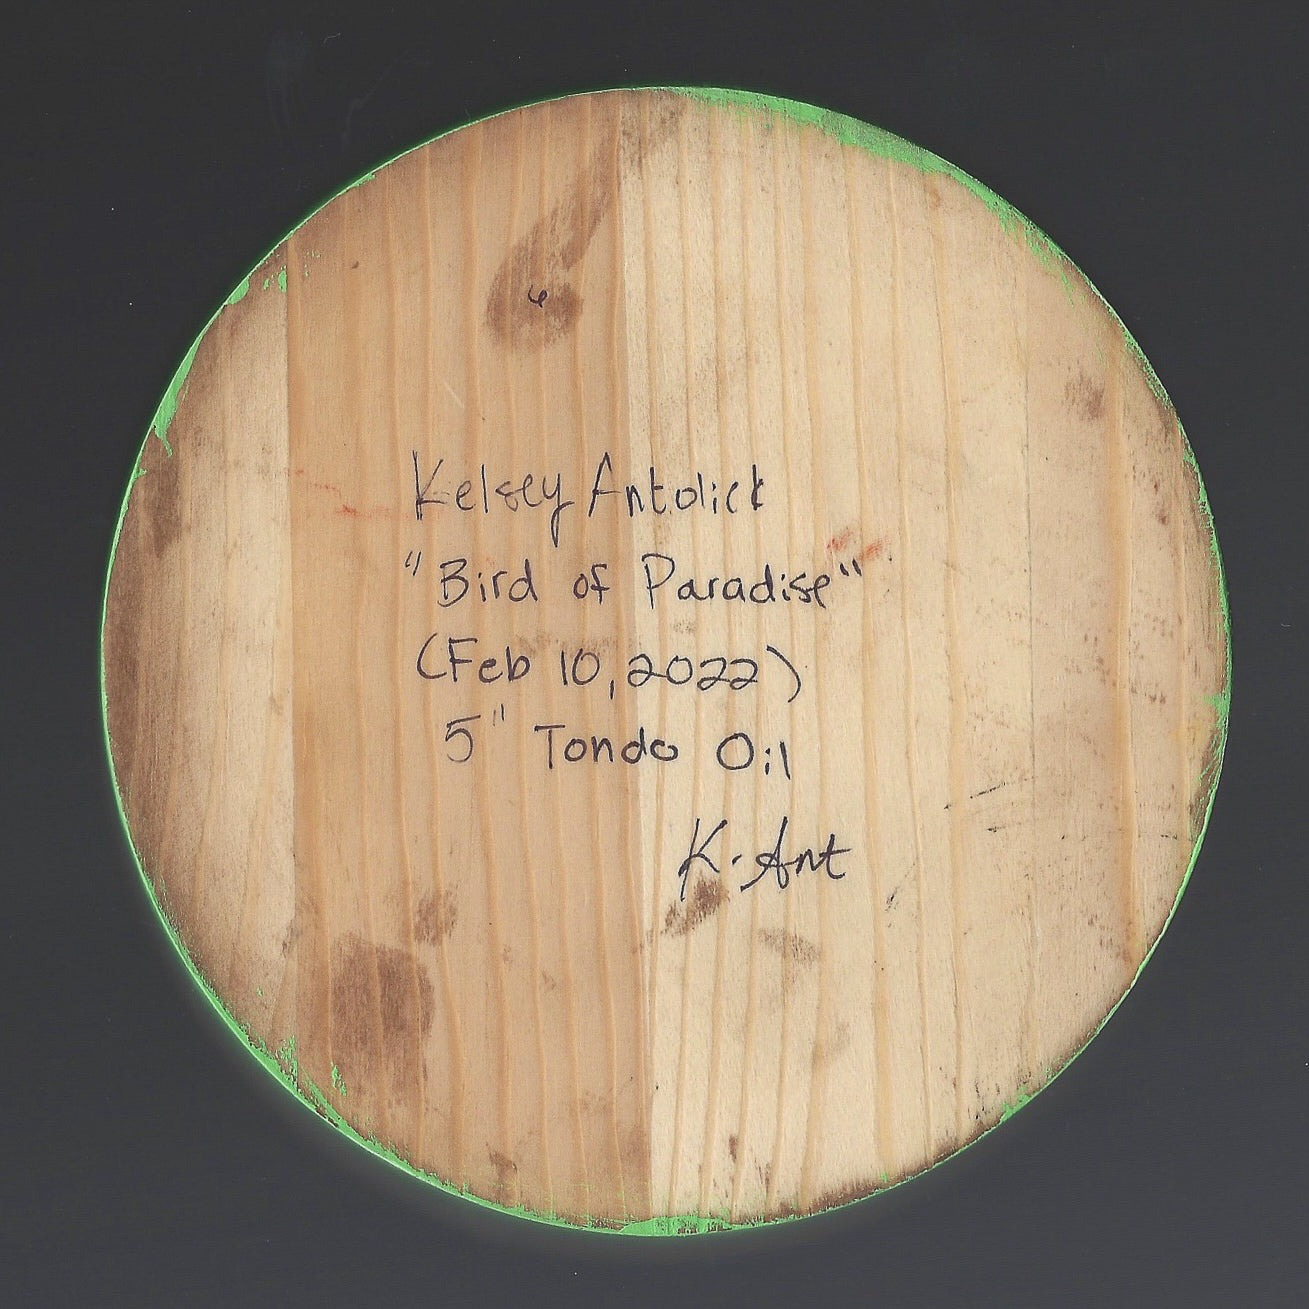 Kelsey Antolick
"Bird of Paradise"
(Feb 10, 2022)
5" Tondo Oil
K. Ant